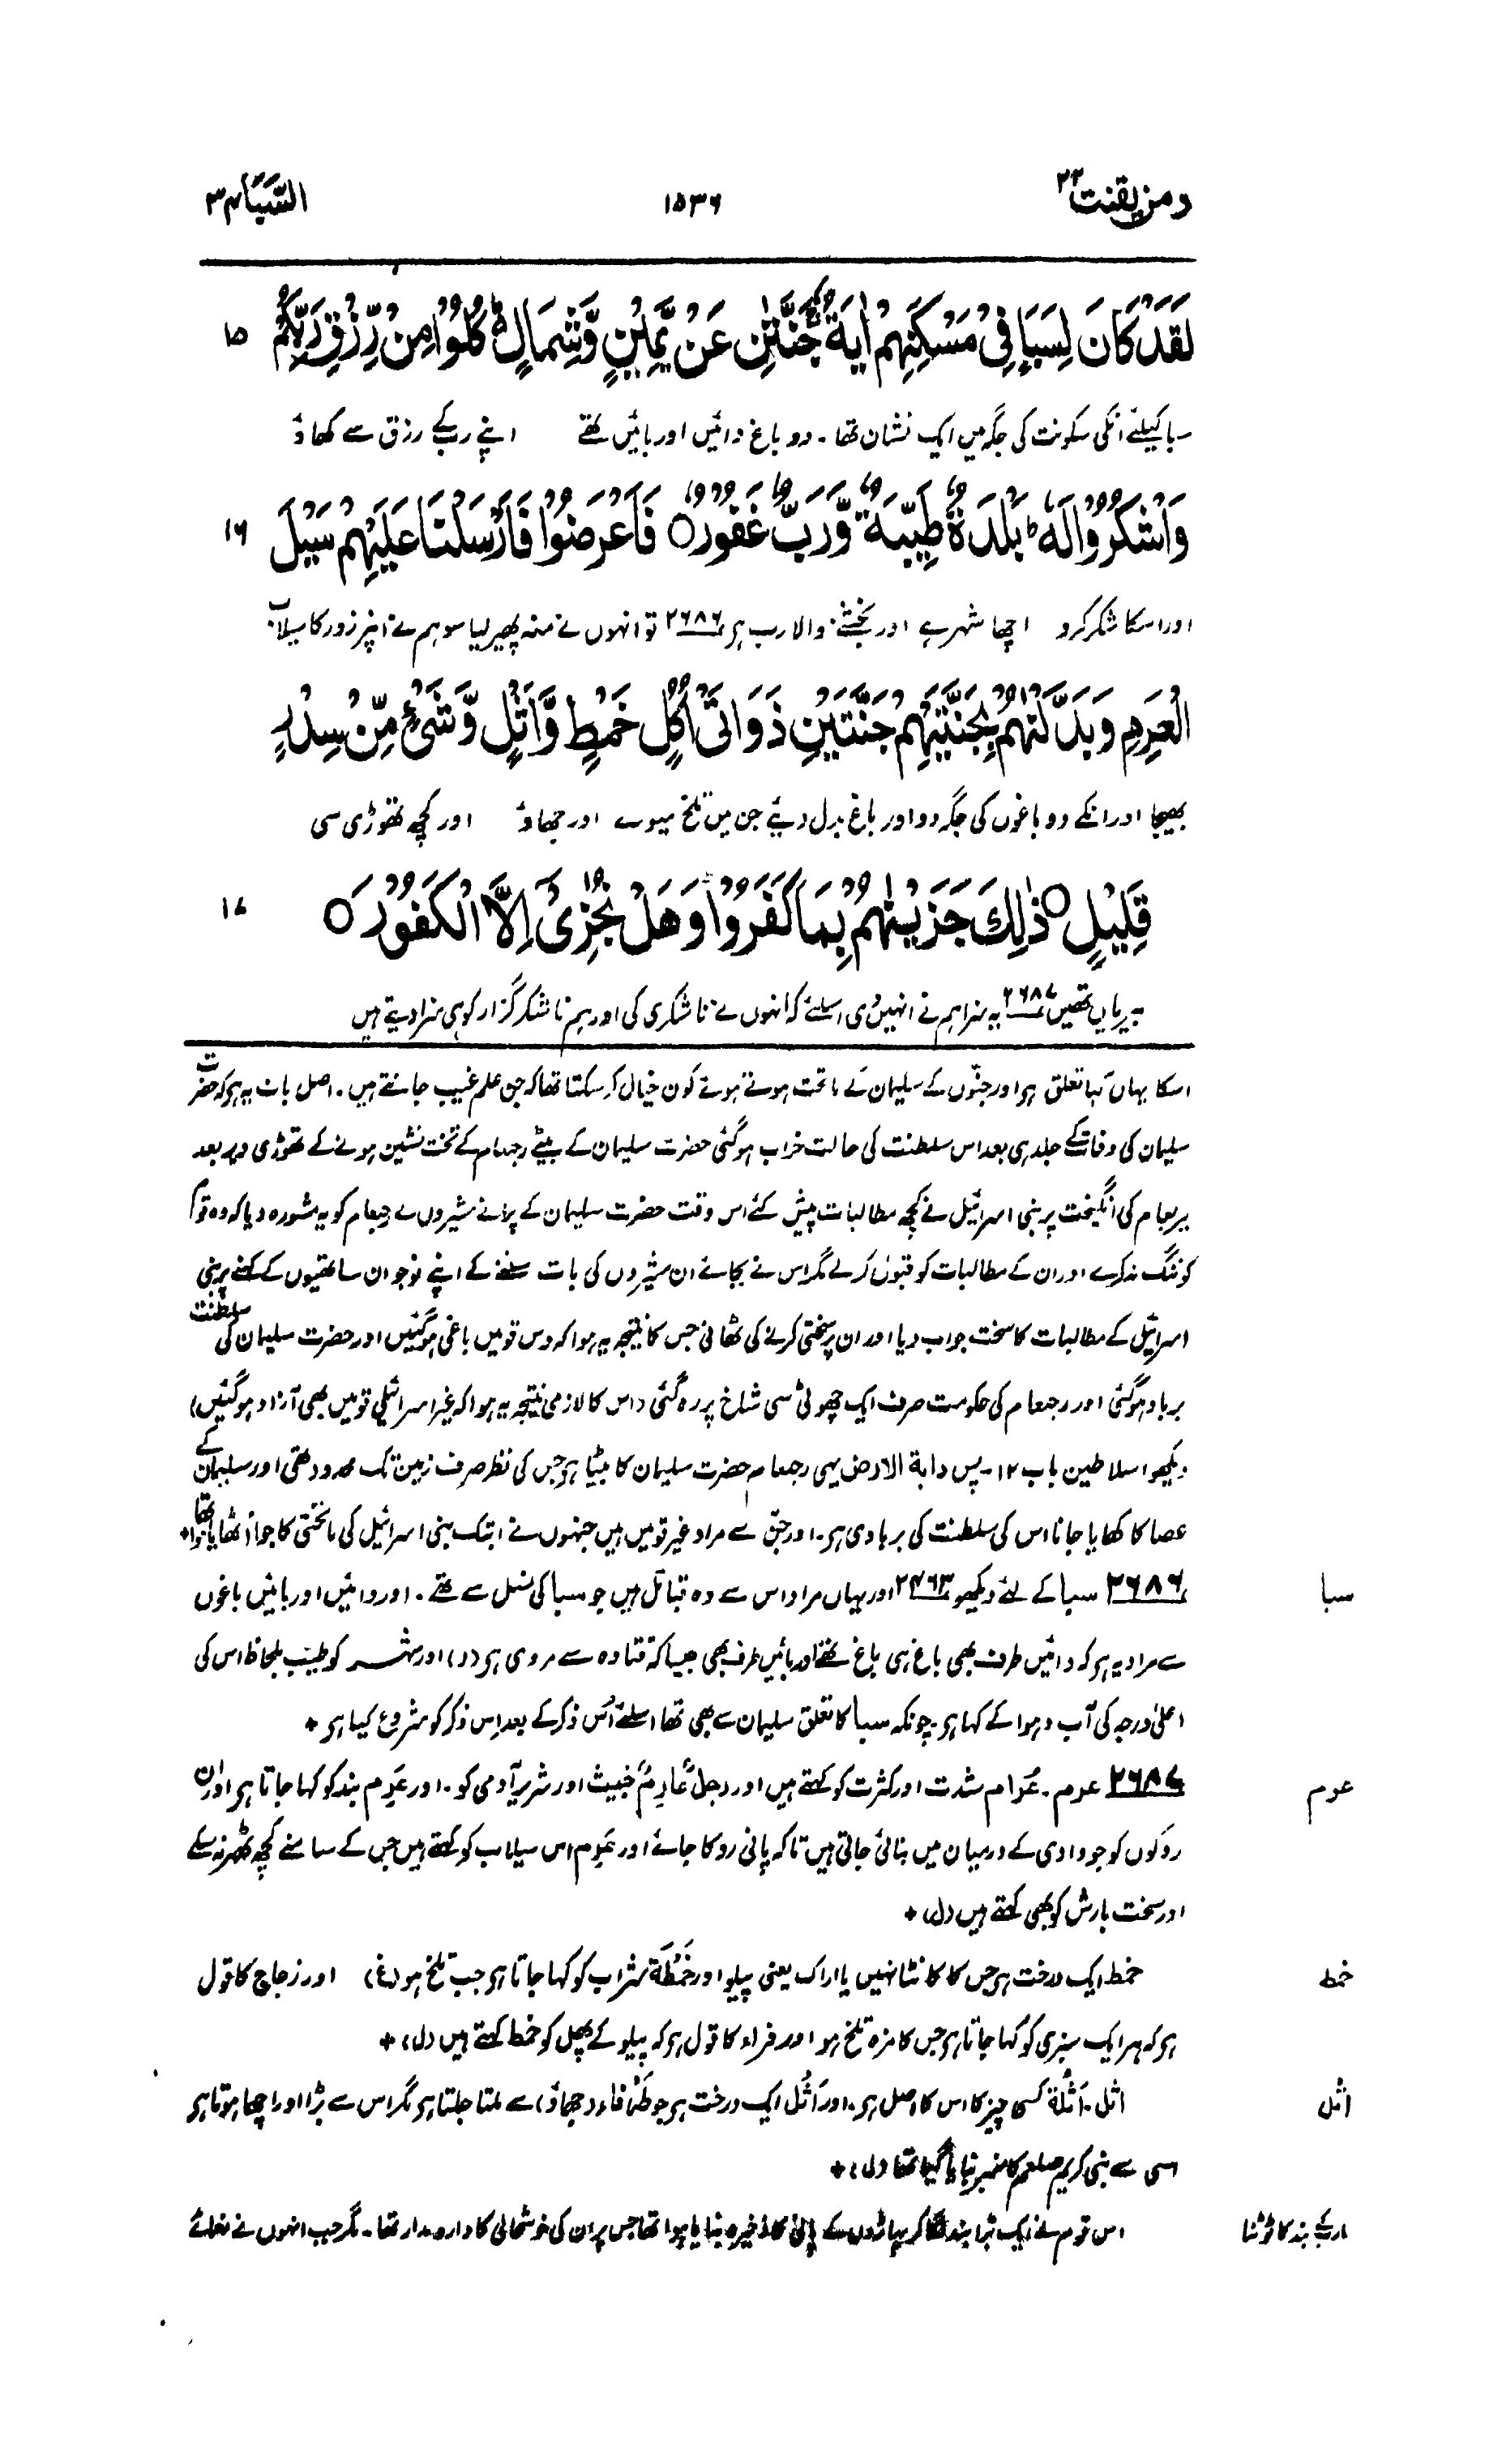 ومن یقنت ۲۲ ۱۵۳۶ السَّبَا ۳۴
لَقَدْ كَانَ لِسَبَاٍ فِیْ مَسْكَنِهِمْ اٰیَةٌ ۚ جَنَّتٰنِ عَنْ یَّمِیْنٍ وَّشِمَالٍ ؕ كُلُوْا مِنْ رِّزْقِ رَبِّكُمْ ۱۵
سبا کیلئے انکی سکونت کی جگہ میں ایک نشان تھا۔ دو باغ دائیں اور بائیں تھے اپنے رب کے رزق سے کھاؤ
وَاشْكُرُوْا لَهٗ ؕ بَلْدَةٌ طَیِّبَةٌ وَّرَبٌّ غَفُوْرٌ ○ فَاَعْرَضُوْا فَاَرْسَلْنَا عَلَیْهِمْ سَیْلَ ۱۶
اور اسکا شکر کرو اچھا شہر ہے اور بخشنے والا رب ہر ۲۶۸۶ تو انہوں نے منہ پھیر لیا سو ہم نے انپر زور کا سیلاب
الْعَرِمِ وَبَدَّلْنٰهُمْ بِجَنَّتَیْهِمْ جَنَّتَیْنِ ذَوَاتَیْ اُكُلٍ خَمْطٍ وَّاَثْلٍ وَّشَیْءٍ مِّنْ سِدْرٍ
بھیجا اور انکے دو باغوں کی جگہ دو اور باغ بدل دیئے جن میں تلخ میوے اور جھاؤ اور کچھ تھوڑی سی
قَلِیْلٍ ○ ذٰلِكَ جَزَیْنٰهُمْ بِمَا كَفَرُوْا ؕ وَهَلْ نُجٰزِیْۤ اِلَّا الْكَفُوْرَ ○ ۱۷
بیریاں تھیں ۲۶۸۷ یہ سزا ہم نے انہیں دی اسلئے کہ انہوں نے ناشکری کی اور ہم ناشکرگزار کو ہی سزا دیتے ہیں
اسکا یہاں کیا تعلق ہر اور جنّوں کے سلیمان کے ماتحت ہوتے ہوئے کون خیال کر سکتا تھا کہ جن علم غیب جانتے ہیں۔ اصل بات یہ ہر کہ حضرت
سلیمان کی وفات کے جلد ہی بعد اس سلطنت کی حالت خراب ہو گئی حضرت سلیمان کے بیٹے رجعام کے تخت نشین ہونے کے تھوڑی دیر بعد
یربعام کی انگیخت پر بنی اسرائیل نے کچھ مطالبات پیش کئے اس وقت حضرت سلیمان کے پرانے مشیروں نے رجعام کو یہ مشورہ دیا کہ وہ قوم
کو تنگ نہ کرے اور ان کے مطالبات کو قبول کر لے مگر اس نے بجائے ان مشیروں کی بات سننے کے اپنے نوجوان ساتھیوں کے کہنے پر بنی
اسرائیل کے مطالبات کا سخت جواب دیا اور ان پر سختی کرنے کی ٹھانی جس کا نتیجہ یہ ہوا کہ دس قومیں باغی ہو گئیں اور حضرت سلیمان کی سلطنت
برباد ہو گئی اور رجعام کی حکومت صرف ایک چھوٹی سی شاخ پر رہ گئی (اس کا لازمی نتیجہ یہ ہوا کہ غیر اسرائیلی قومیں بھی آزاد ہو گئیں)
دیکھو ۱ سلاطین باب ۱۲۔ پس دابة الارض یہی رجعام حضرت سلیمان کا بیٹا ہر جس کی نظر صرف زمین تک محدود تھی اور سلیمان کے
عصا کا کھایا جانا اس کی سلطنت کی بربادی ہر۔ اور جن سے مراد غیر قومیں ہیں جنہوں نے ابتک بنی اسرائیل کی ماتحتی کا جوا اُٹھایا ہوا تھا +
سبا ۲۶۸۶ سبا کے لئے دیکھو ۲۴۶۳ اور یہاں مراد اس سے وہ قبائل ہیں جو سبا کی نسل سے تھے۔ اور دائیں اور بائیں باغوں
سے مراد یہ ہر کہ دائیں طرف بھی باغ ہی باغ تھے اور بائیں طرف بھی جیسا کہ قتادہ سے مروی ہر (ر) اور شہر کو طیّب بلحاظ اس کی
اعلیٰ درجہ کی آب و ہوا کے کہا ہر۔ چونکہ سبا کا تعلق سلیمان سے بھی تھا اسلئے اُس ذکر کے بعد اِس ذکر کو شروع کیا ہر +
عرم ۲۶۸۷ عرم۔ عُرَام شدت اور کثرت کو کہتے ہیں اور رجل عَارِمٌ خبیث اور شریر آدمی کو۔ اور عَرِم بند کو کہا جاتا ہر اور ان
روکوں کو جو وادی کے درمیان میں بنائی جاتی ہیں تاکہ پانی روکا جائے اور عَرِم اس سیلاب کو کہتے ہیں جس کے سامنے کچھ ٹھہر نہ سکے
اور سخت بارش کو بھی کہتے ہیں (ل) +
خمط خمط ایک درخت ہر جس کا کانٹا نہیں یا اراک یعنی پیلو اور خَمْطَة شراب کو کہا جاتا ہر جب تلخ ہو (غ) اور زجاج کا قول
ہر کہ ہر ایک سبزی کو کہا جاتا ہر جس کا مزہ تلخ ہو اور فراء کا قول ہر کہ پیلو کے پھل کو خمط کہتے ہیں (ل) +
اثل اثل۔ اَثْلَة کسی چیز کا اس کا اصل ہر۔ اور اَثْل ایک درخت ہر جو طَرْفاء (جھاؤ) سے ملتا جلتا ہر مگر اس سے بڑا اور اچھا ہوتا ہر
اسی سے نبی کریم صلعم کا منبر بنایا گیا تھا (ل) +
مارب کے بند کا ٹوٹنا اس قوم نے ایک بڑا بند لگا کر پہاڑوں کے پانی کا ذخیرہ بنایا ہوا تھا جس پر ان کی خوشحالی کا دارومدار تھا۔ مگر جب انہوں نے خدائے